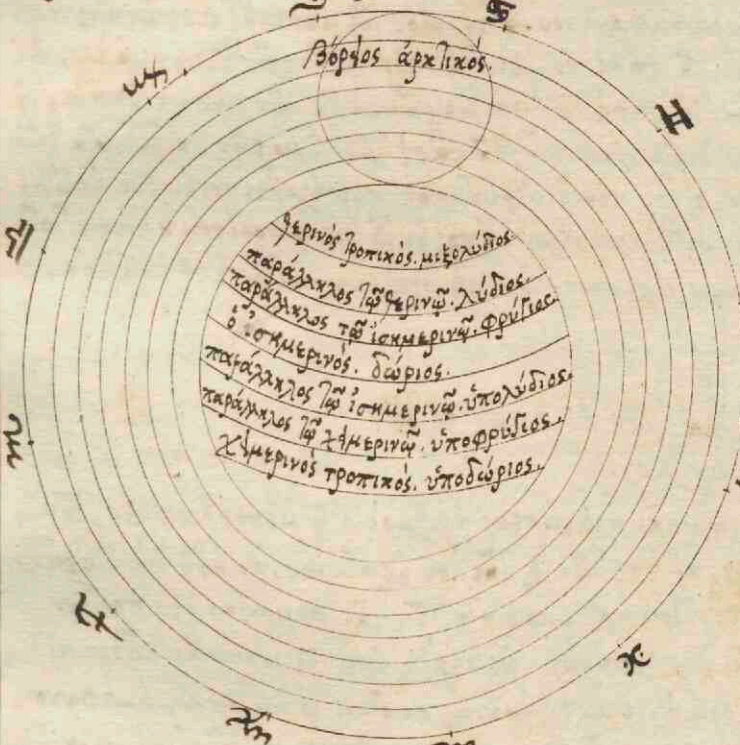 Βόρειος ἀρκτικός.
θερινὸς τροπικός. μιξολύδιος
παράλληλος τῷ θερινῷ. λύδιος.
παράλληλος τῷ ἰσημερινῷ. φρύγιος.
ὁ ἰσημερινός. δώριος.
παράλληλος τῷ ἰσημερινῷ. ὑπολύδιος.
παράλληλος τῷ χειμερινῷ. ὑποφρύγιος.
χειμερινὸς τροπικός. ὑποδώριος.